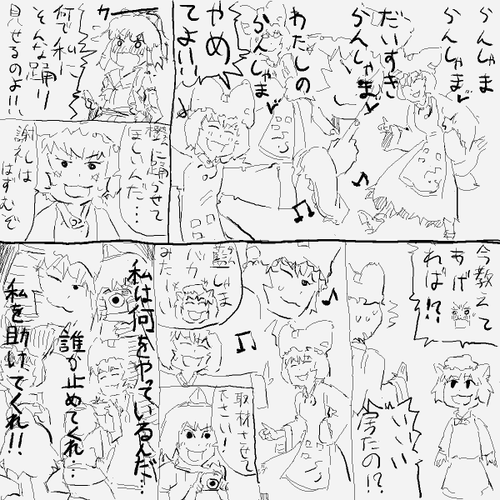 らんしゃま
らんしゃま♥
だいすき
らんしゃま♥
わたしの
らんしゃま♥
やめ
てよ!!
何で私に
そんな踊り
見せるのよ!!
橙に踊らせて
ほしいんだ…
謝礼は
はずむぞ
今教えて
あげ
れば!?
藍しゃま
バカ
みた
取材させて
下さい!
私は何をやっているんだ…
誰か止めてくれ…
私を助けてくれ!!